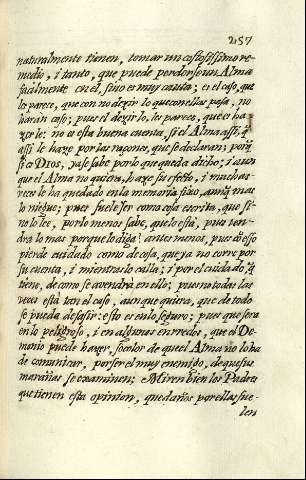 257
naturalmente tienen, tomar un costosissimo re-
medio, i tanto, que puede perderse un Alma
facilmente en el, si no es muy cauta; es el caso, que
les parece, que con no dezir lo que con ellas pasa, no
harán caso; pues el dezirlo, les parece, que es ha-
zerle: no a esta buena cuenta, si el Alma assi, q̃
assi le haze por las razones, que se declaran; porq̃
si es DIOS, ya se sabe por lo que queda dicho; i aun
que el Alma no quiera, haze su efecto, i muchas
vezes le ha quedado en la memoria fixo, aunq̃ mas
lo niegue; pues suele ser como cosa escrita, que si
no lo lee, por lo menos sabe, que lo está, pues ten-
drá lo mas porque lo diga: antes menos, pues cõ esso
pierde cuidado como de cosa, que ya no corre por
su cuenta, i mientras lo calla; i por el cuidado, q̃
tiene, de como se avendrá en ello; pues no todas las
vezes está tan el caso, aunque quiera, que de todo
se pueda desasir: esto es en lo seguro; pues que será
en lo peligroso, i en algunos enrredos, que el De-
monio puede hazer, socolor de que el Alma no lo ha
de comunicar, por ser el muy enemigo, de que sus
marañas se examinen; Miren bien los Padres
que tienen esta opinion, que daños por ellas sue-
len